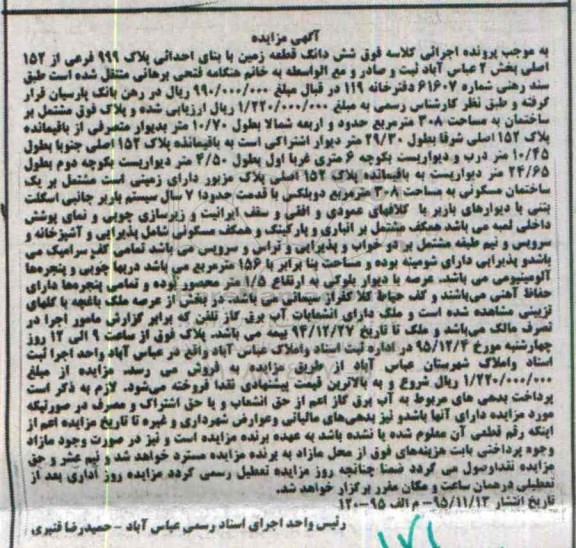 آگهی مزایده
به موجب پرونده اجرائی کلاسه فوق شش دانگ قطعه زمین با بنای احداثی پلاک ۹۹۹ فرعی از ۱۵۲
اصلی بخش ۲ عباس آباد ثبت و صادر و مع الواسطه به خانم هنگامه فتحی برهانی منتقل شده است طبق
سند رهنی شماره ۶۱۶۰۷ دفترخانه ۱۱۹ در قبال مبلغ ۹۹۰/۰۰۰/۰۰۰ ریال در رهن بانک پارسیان قرار
گرفته و طبق نظر کارشناس رسمی به مبلغ ۱/۲۲۰/۰۰۰/۰۰۰ ریال ارزیابی شده و پلاک فوق مشتمل بر
ساختمان به مساحت ۳۰۸ مترمربع حدود و اربعه شمالا بطول ۱۰/۷۰ متر بدیوار متصرفی از باقیمانده
پلاک ۱۵۲ اصلی شرقا بطول ۲۹/۳۰ متر دیوار اشتراکی است به باقیمانده پلاک ۱۵۲ اصلی جنوبا بطول
۱۰/۴۵ متر درب و دیواریست بکوچه ۶ متری غربا اول بطول ۴/۵۰ متر دیواریست بکوچه دوم بطول
۲۴/۶۵ متر دیواریست به باقیمانده پلاک ۱۵۲ اصلی پلاک مزبور دارای زمینی است مشتمل بر یک
ساختمان مسکونی به مساحت ۳۰۸ مترمربع دوبلکس با قدمت حدودا ۷ سال سیستم باربر جانبی اسکلت
بتنی با دیوارهای باربر با کلافهای عمودی و افقی و سقف ایرانیت و زیرسازی چوبی و نمای پوشش
داخلی لمبه می باشد همکف مشتمل بر انباری و پارکینگ و همکف مسکونی شامل پذیرایی و آشپزخانه و
سرویس و نیم طبقه مشتمل بر دو خواب و پذیرایی و تراس و سرویس می باشد تمامی کف سرامیک می
باشدو پذیرایی دارای شومینه بوده و مساحت بنا برابر با ۱۵۶ مترمربع می باشد دربها چوبی و پنجره‌ها
آلومینیومی می باشد. عرصه با دیوار بلوکی به ارتفاع ۱/۵ متر محصور بوده و تمامی پنجره‌ها دارای
حفاظ آهنی می‌باشند و کف حیاط کلا کفراژ سیمانی می باشد، در بخش از عرصه ملک باغچه با گلهای
تزیینی مشاهده شده است و ملک دارای انشعابات آب برق گاز تلفن که برابر گزارش مامور اجرا در
تصرف مالک می‌باشد و ملک تا تاریخ ۹۴/۱۲/۲۷ بیمه می باشد. پلاک فوق از ساعت ۹ الی ۱۲ روز
چهارشنبه مورخ ۹۵/۱۲/۴ در اداره ثبت اسناد واملاک عباس آباد واقع در عباس آباد واحد اجرا ثبت
اسناد واملاک شهرستان عباس آباد از طریق مزایده به فروش می رسد. مزایده از مبلغ
۱/۲۲۰/۰۰۰/۰۰۰ ریال شروع و به بالاترین قیمت پیشنهادی نقدا فروخته می‌شود. لازم به ذکر است
پرداخت بدهی های مربوط به آب برق گاز اعم از حق انشعاب و یا حق اشتراک و مصرف در صورتیکه
مورد مزایده دارای آنها باشدو نیز بدهی‌های مالیاتی وعوارض شهرداری و غیره تا تاریخ مزایده اعم از
اینکه رقم قطعی آن معلوم شده یا نشده باشد به عهده برنده مزایده است و نیز در صورت وجود مازاد
وجوه پرداختی بابت هزینه‌های فوق از محل مازاد به برنده مزایده مسترد خواهد شد و نیم عشر و حق
مزایده نقداوصول می گردد ضمنا چنانچه روز مزایده تعطیل رسمی گردد مزایده روز اداری بعد از
تعطیلی درهمان ساعت و مکان مقرر برگزار خواهد شد.
تاریخ انتشار ۹۵/۱۱/۱۳- م الف ۹۵-۱۲۰
رئیس واحد اجرای اسناد رسمی عباس آباد -حمیدرضا قنبری